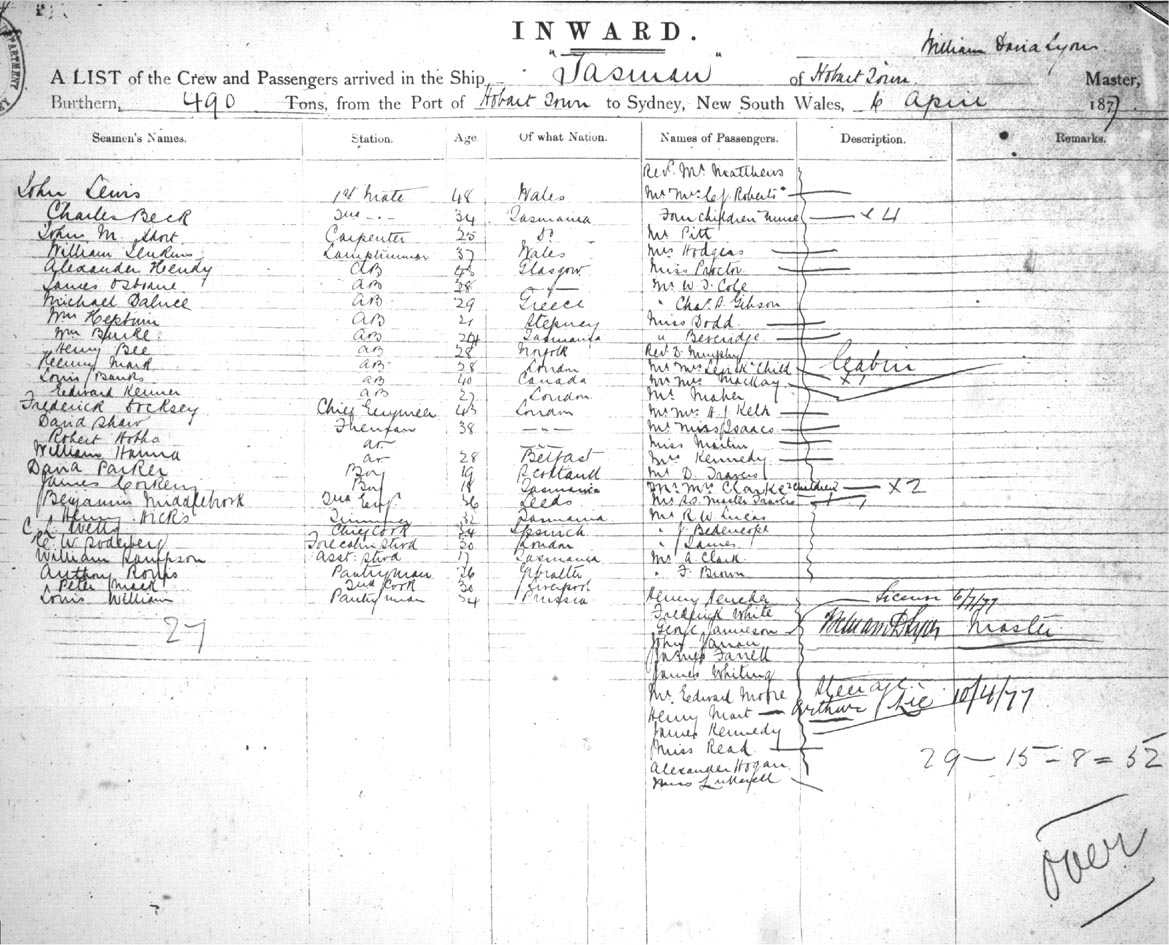 INWARD.
William David Lyons
A LIST of the Crew and Passengers arrived in the Ship "Tasman" of Hobart Town Master,
Burthern, 490 Tons, from the Port of Hobart Town to Sydney, New South Wales, 6 April 1877
Seamen's Names. Station. Age Of what Nation. Names of Passengers. Description. Remarks.
Revd. Mr Matthews
John Lewis 1st Mate 48 Wales Mr Mrs Roberts
Charles Beck 34 Tasmania Four children nurse x 4
John M. Short Carpenter 25 Do Mr Pitt
William Jenkins Lamptrimmer 37 Wales Mrs Hodgens
Alexander Hendy AB 48 Glasgow Miss Proctor
James Osborne AB 28 Mr W. J. Cole
Michael AB 29 Greece " Chas. Gibson
Wm Hepburn AB 21 Stepney Miss Dodd
Wm Burke AB 24 Tasmania " Beveridge
Henry Bee AB 28 Norfolk Revd D. Murphy
Henry Mark AB 28 London Mr Mrs Child Cabin
Louis Banks AB 40 Canada Mr Mrs Mackay x 1
Edward Kenner AB 27 London Mr Maher
Frederick Socksey Chief Engineer 43 London Mr Mrs H. J. Kelk
David Shaw Fireman 38 Mr Miss Isaacs
Robert Miss Martin
William Hanna 28 Belfast Mrs Kennedy
David Parker Boy 19 Scotland Mr D. Travers
James Boy 18 Tasmania Mr Mrs Clarke 2 children x 2
Benjamin Middlebrook 2nd Engr 36 Leeds Mrs Master Travers
Henry Hicks Trimmer 32 Tasmania Mr R W Lucas
Wells Chief Cook 34 Ipswich " J.
W Forecabin Stwd 30 London " James
William Sampson Asst. Stwd 17 Tasmania Mr A. Clark
Anthony Pantryman 26 Gibralter " F. Brown
Peter 2nd Cook 30 Liverpool
Louis William Pantryman 34 Prussia Henry License 6/7/77
Frederick White
27 George Jamieson William D Lyons Master
John
James Farrell
James Whiting
Mr Edward Moore Steerage
Henry Mart Arthur 10/4/77
James Kennedy
Miss Read
29 — 15 — 8 = 52
Alexander Hogan
Miss
over